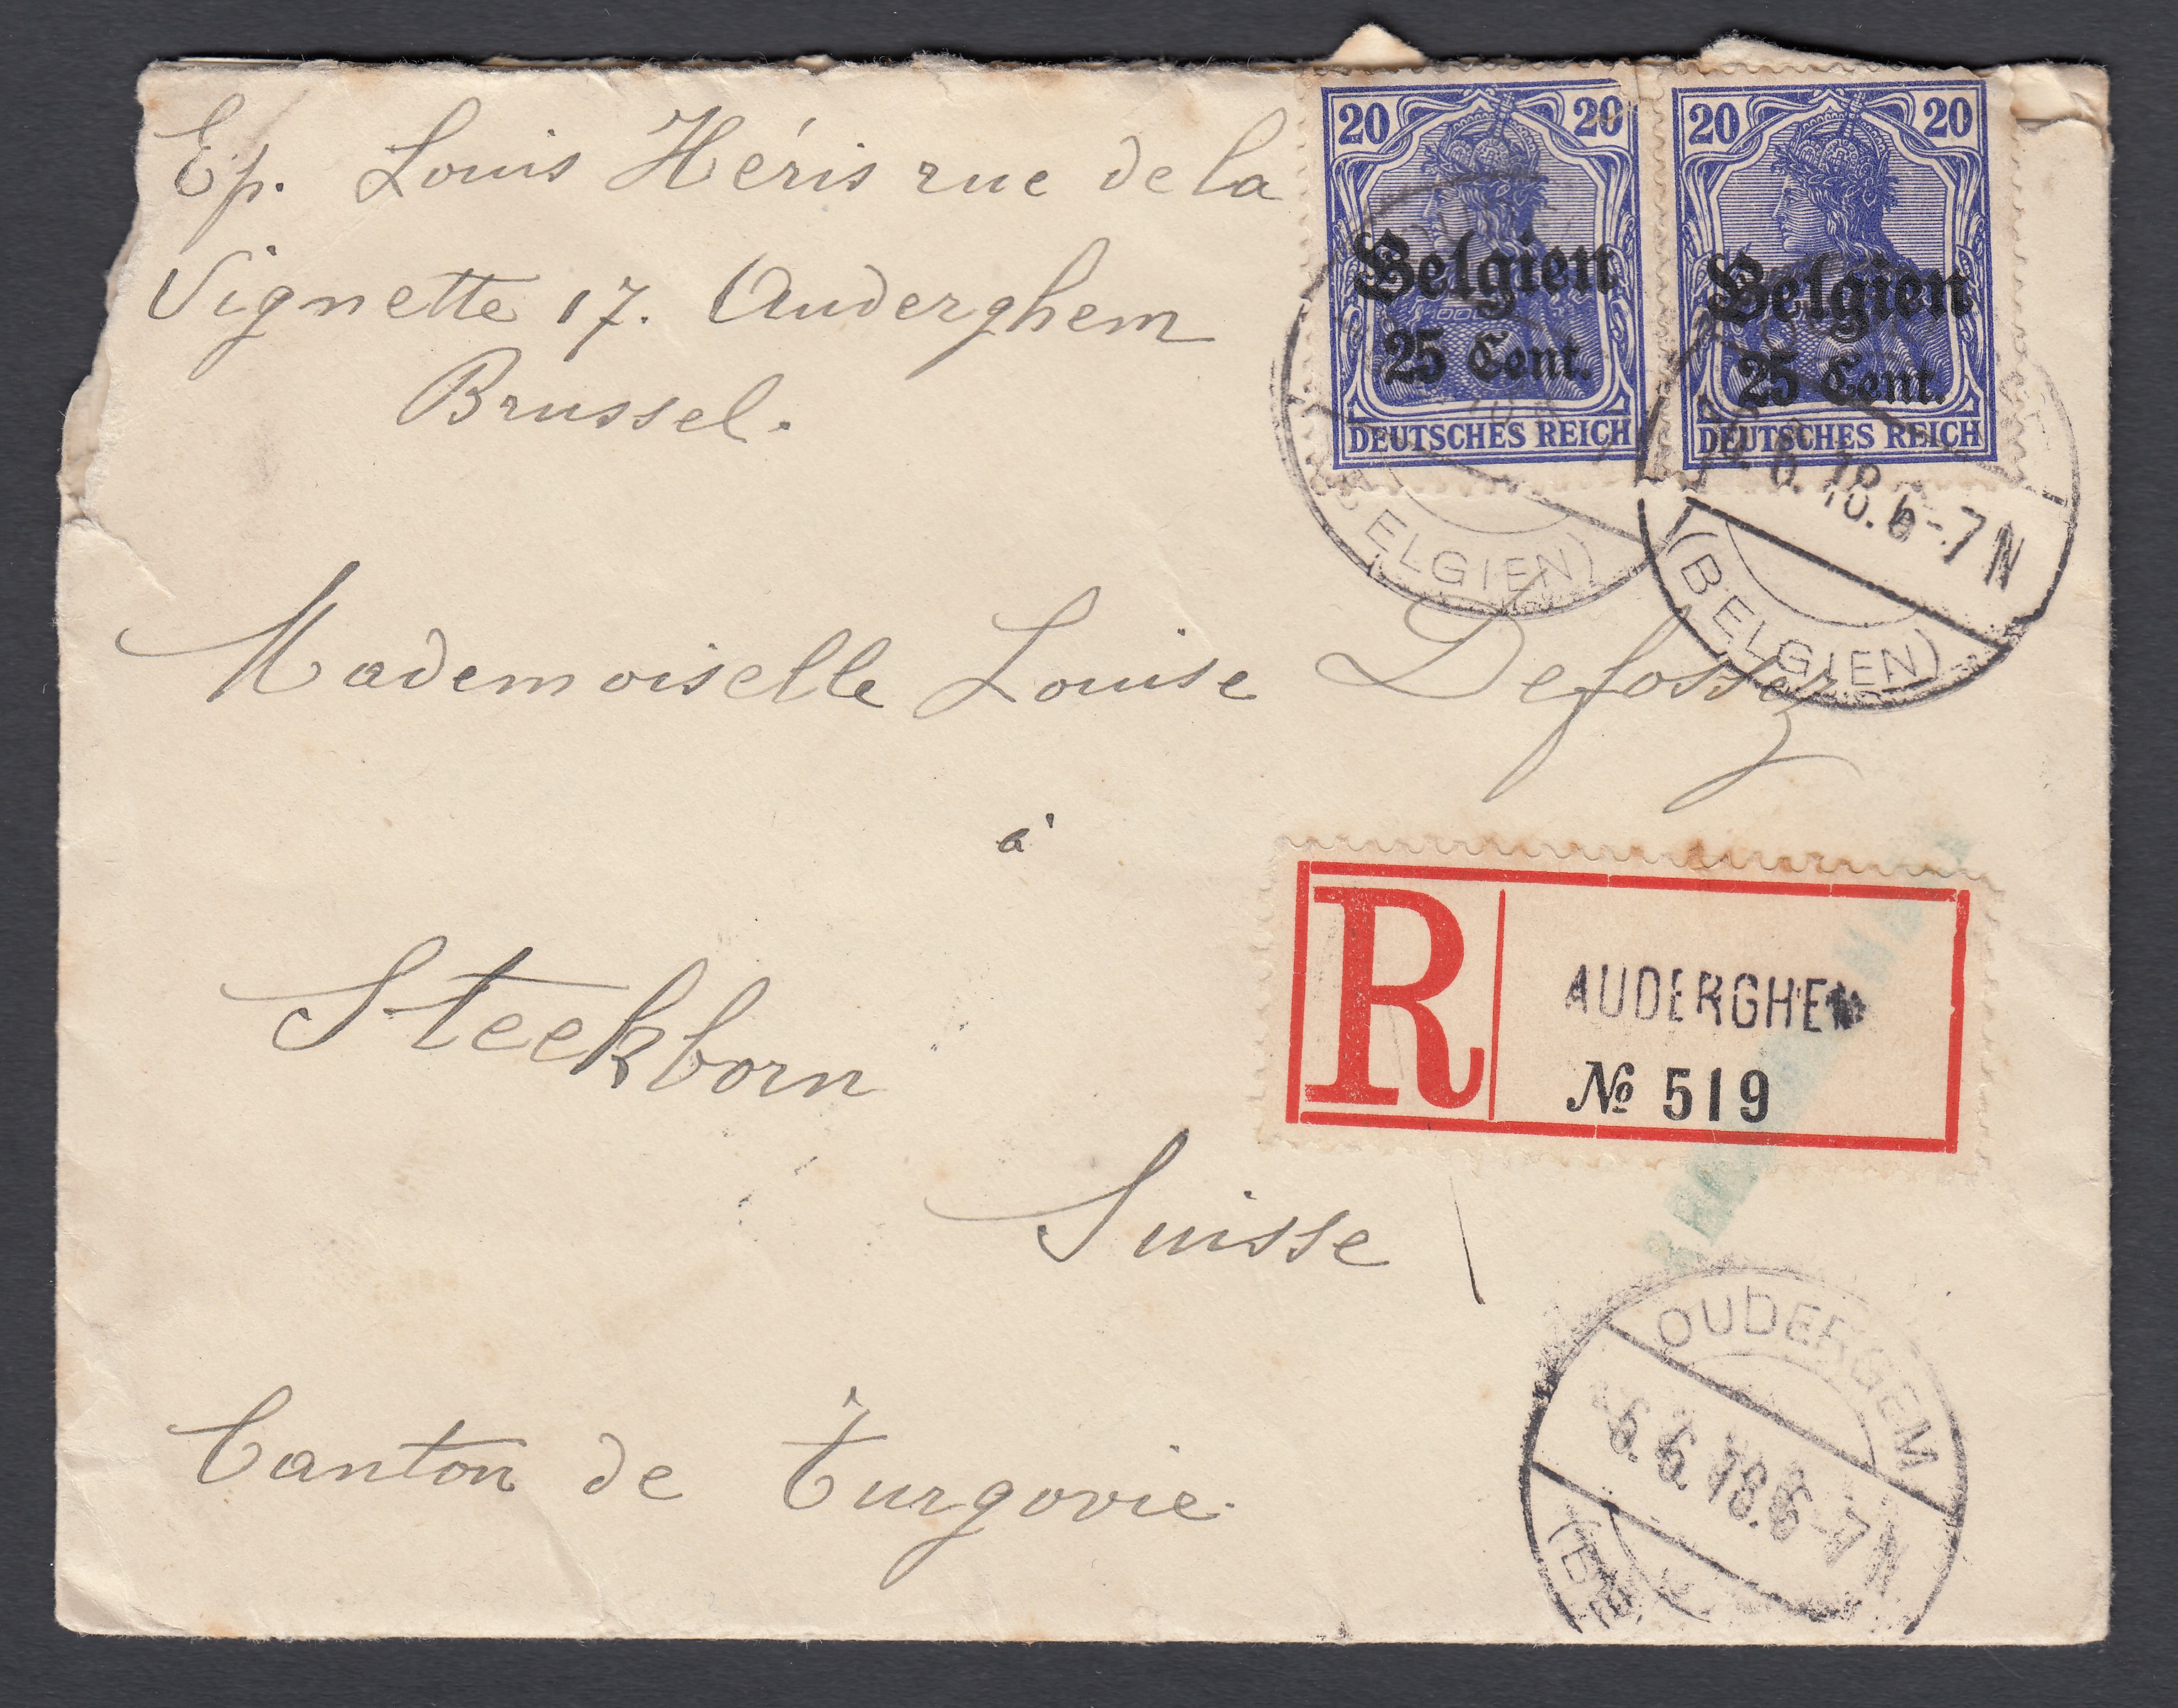 Ep. Louis Héris rue de la
Vignette 17. Auderghem
Brussel.
20 20
Belgien
25 Cent.
DEUTSCHES REICH
20 20
Belgien
25 Cent.
DEUTSCHES REICH
(BELGIEN)
6. 18. 6-7 N
(BELGIEN)
Mademoiselle Louise Defossez
à
Steekborn
Suisse
Canton de Turgovie.
R
AUDERGHEM
№ 519
OUDERGEM
6. 6. 18. 6-7 N